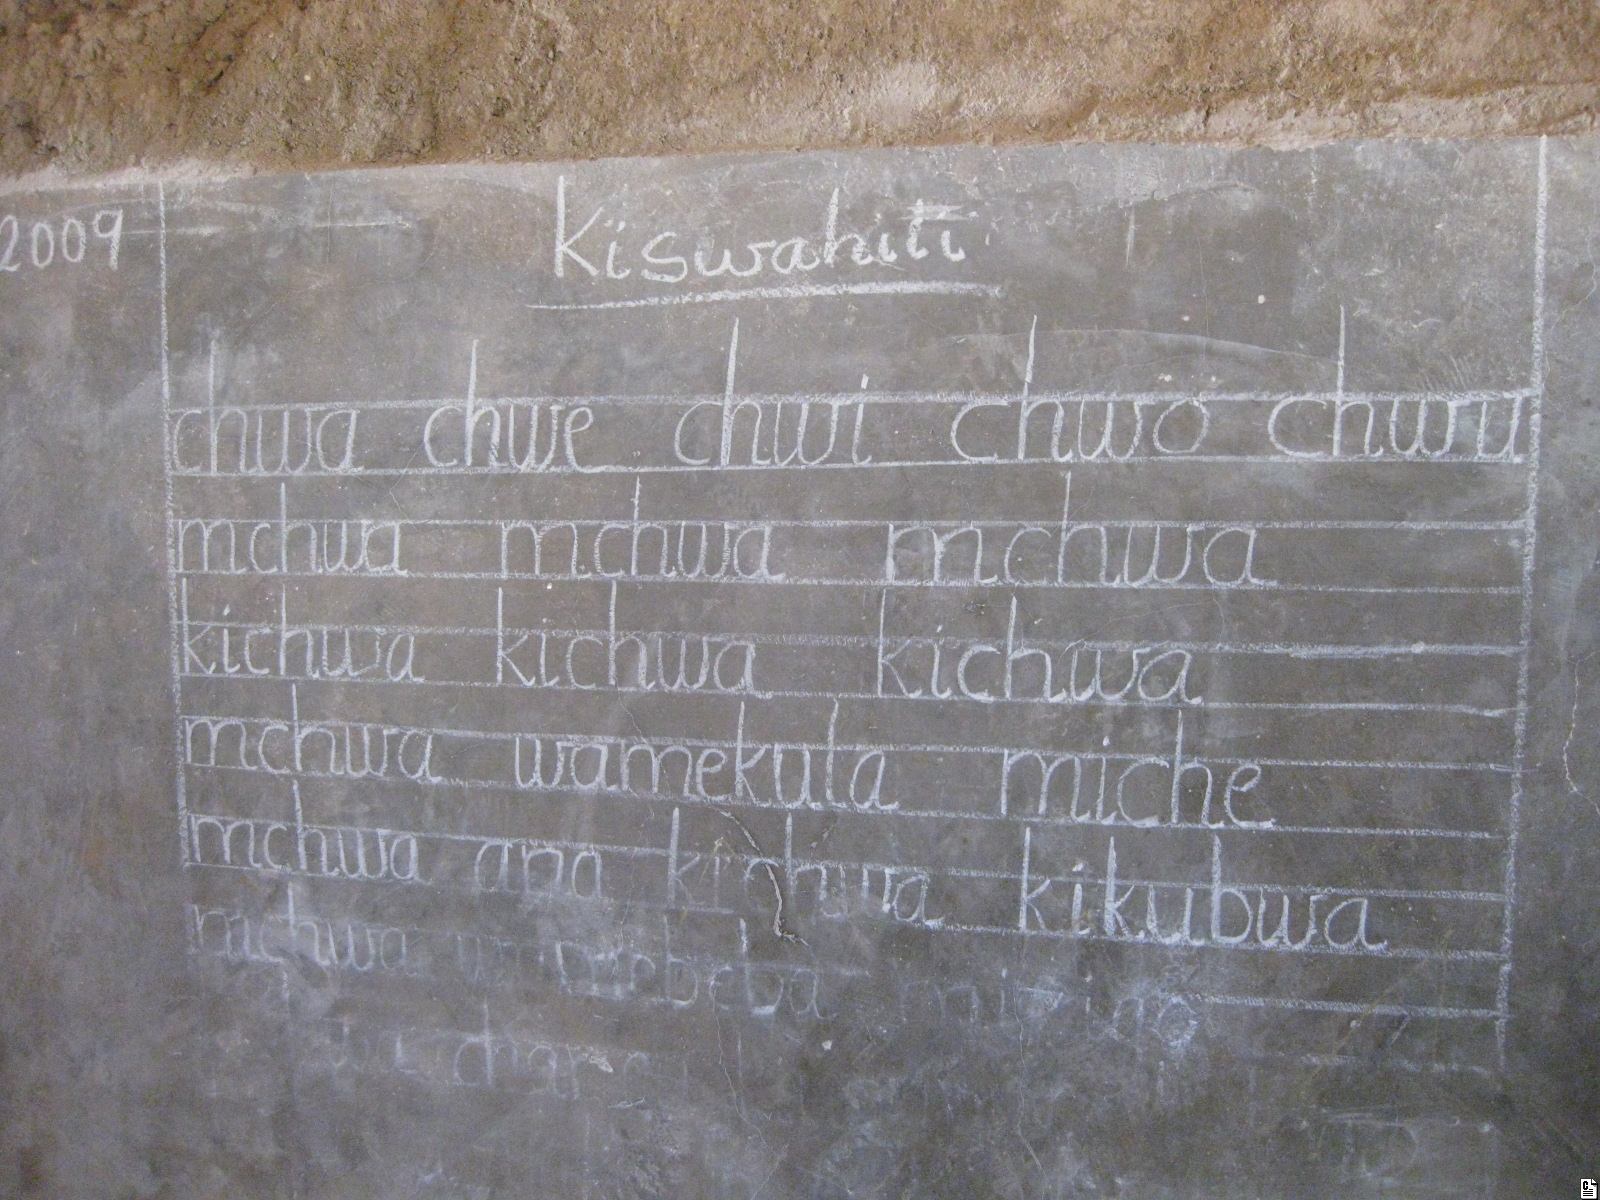 2009
Kiswahili
chwa chwe chwi chwo chwu
mchwa mchwa mchwa
kichwa kichwa kichwa
mchwa wamekula miche
mchwa ana kichwa kikubwa
mchwa